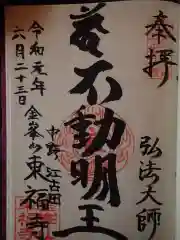 奉拝
弘法大師
不動明王
中野江古田
金峯山東福寺
令和元年
六月二十三日